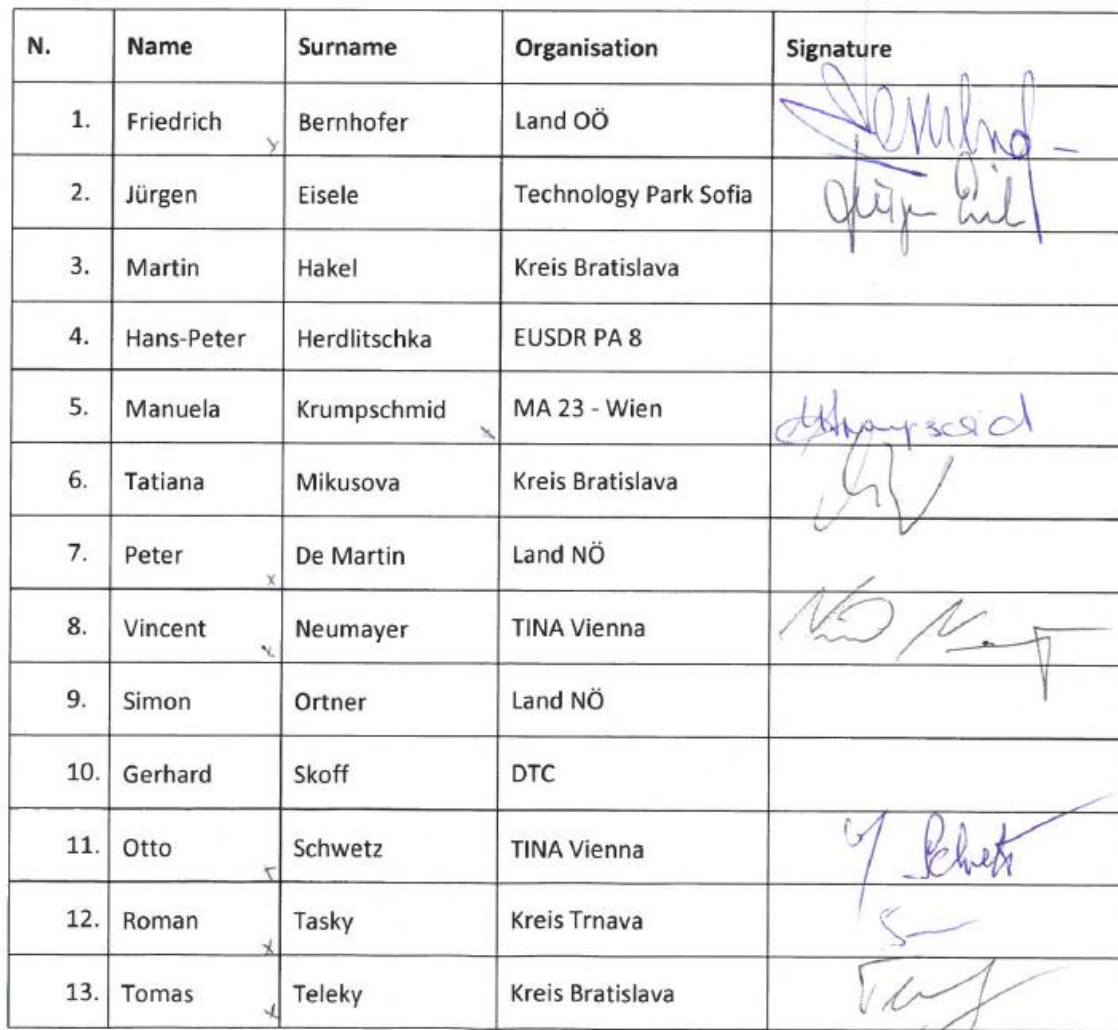 N. Name Surname Organisation Signature
1. Friedrich Bernhofer Land OÖ
2. Jürgen Eisele Technology Park Sofia
3. Martin Hakel Kreis Bratislava
4. Hans-Peter Herdlitschka EUSDR PA 8
5. Manuela Krumpschmid MA 23 - Wien
6. Tatiana Mikusova Kreis Bratislava
7. Peter De Martin Land NÖ
8. Vincent Neumayer TINA Vienna
9. Simon Ortner Land NÖ
10. Gerhard Skoff DTC
11. Otto Schwetz TINA Vienna
12. Roman Tasky Kreis Trnava
13. Tomas Teleky Kreis Bratislava